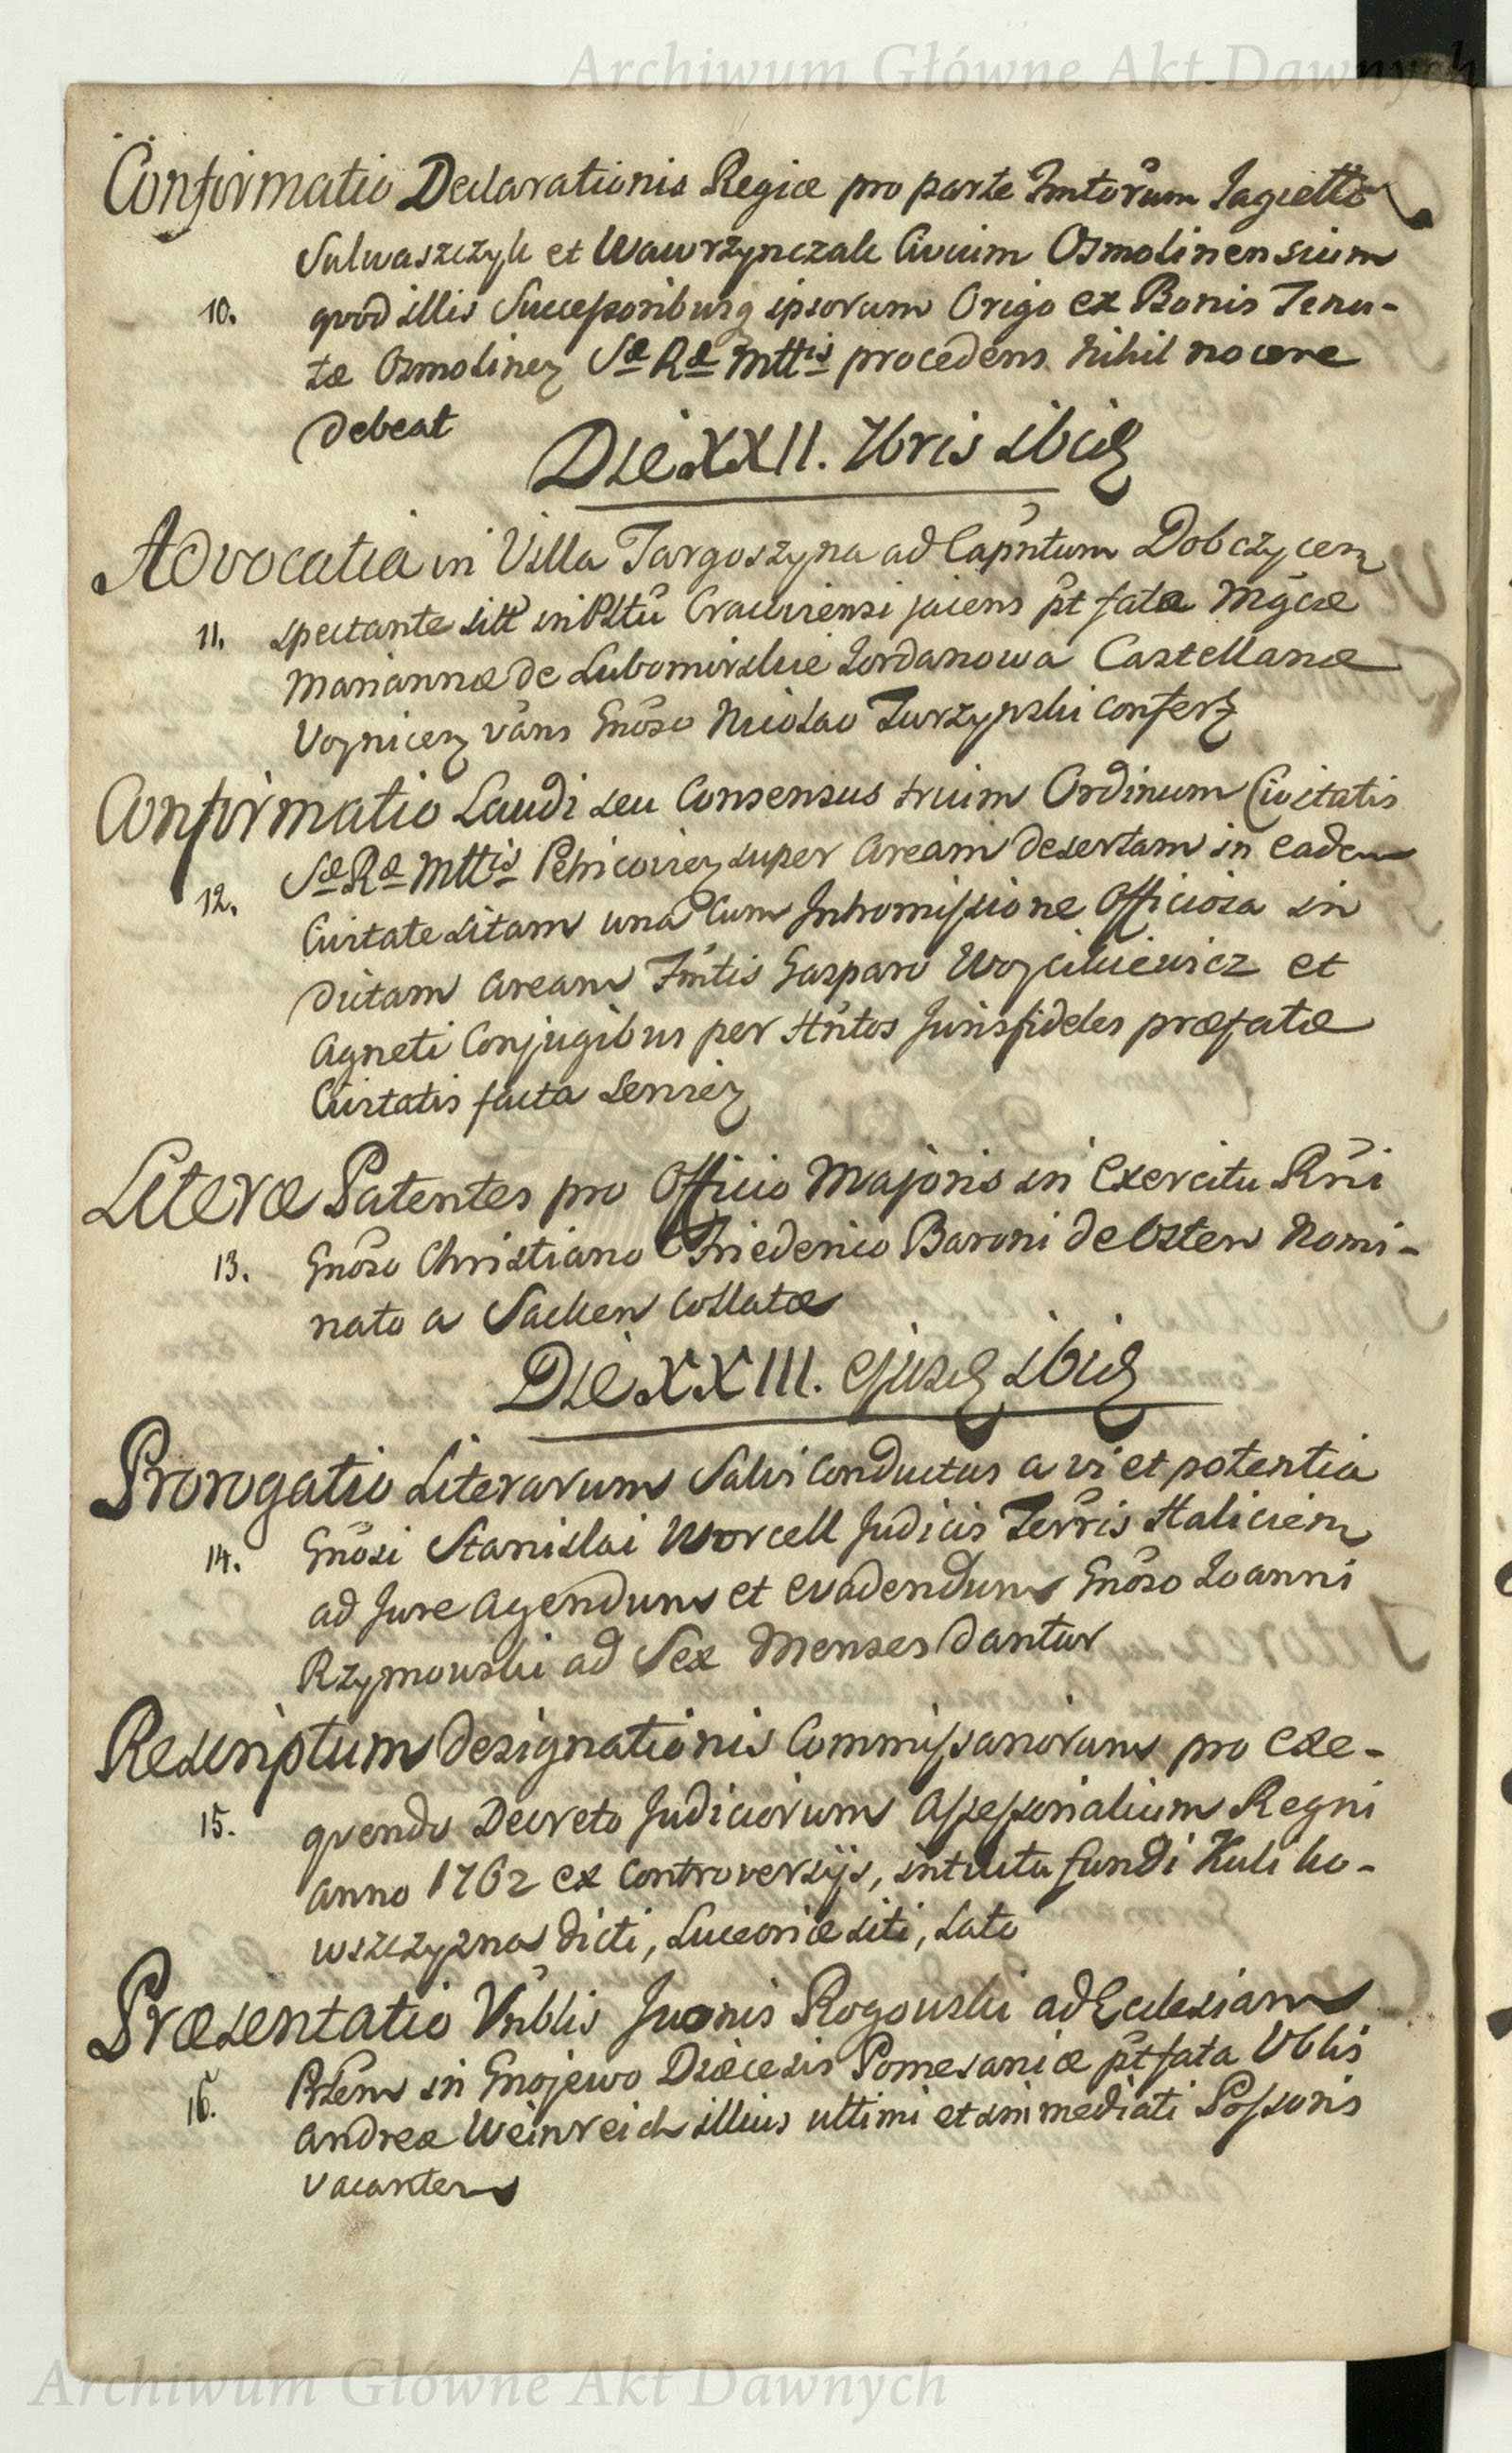 Archiwum Główne Akt Dawnych
Confirmatio Declarationis Regiæ pro parte Fmtorum Jagiełło
Sulwaszczyk et Wawrzynczak Civium Osmolinensium
10. qvod illis Successoribusq ipsorum Origo ex Bonis Tenu-
tæ Osmolinen Sæ Ræ Mttis procedens nihil nocere
debeat
Die XXII. 7bris ibid
Advocatia in Villa Targoszyna ad Capntum Dobczycen
11. spectante sitt in Pttu Cracoviensi jacens pt fata Mgcæ
Mariannæ de Lubomirskie Jordanowa Castellanæ
Voynicen vans Gnoso Nicolao Turzynski confert
Confirmatio Laudi seu Consensus trium Ordinum Civitatis
12. Sæ Ræ Mttis Petricovien super Aream desertam in eadem
Civitate sitam una cum Intromissione Officiosa in
dictam Aream Fmtis Gasparo Woycikiewicz et
Agneti Conjugibus per Hntos Jurisfideles præfatæ
Civitatis facta servien
Literæ Patentes pro Officio Majoris in Exercitu Rni
13. Gnoso Christiano Friederico Baroni de Osten Nomi-
nato a Sacken Collatæ
Die XXIII. ejusd ibid
Prorogatio Literarum Salvi Conductus a vi et potentia
14. Gnosi Stanislai Worcell Judicis Terris Halicien
ad Jure agendum et evadendum Gnoso Joanni
Rzymowski ad Sex Menses dantur
Rescriptum designationis Commissariorum pro exe-
15. qvendo Decreto Judiciorum Assessorialium Regni
Anno 1762 ex Controversijs, intuitu fundi Kuliko-
wszczyzna dicti, Luceoriæ siti, lato
Præsentatio Vnblis Juonis Rogowski ad Ecclesiam
16. Pslem in Gnojewo Diæcesis Pomesaniæ pt fata Vblis
Andreæ Weinreich illius ultimi et immediati Possoris
vacantem
Archiwum Główne Akt Dawnych